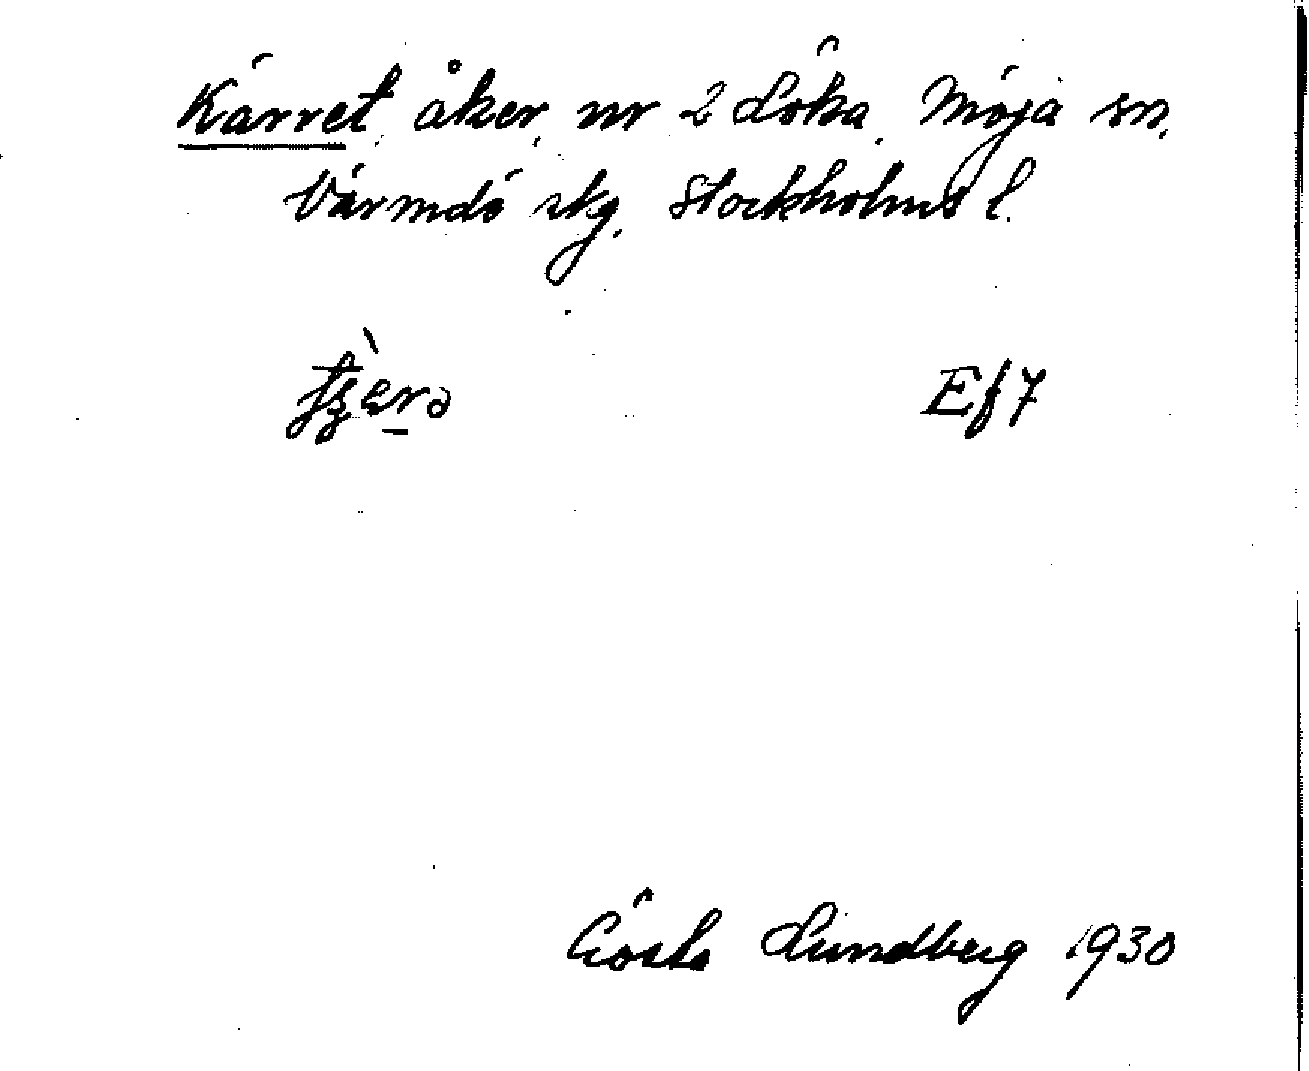 Kärret, åker, nr 2 Löka, Möja sn,
Värmdö skg, Stockholms l.
Ef 7
Gösta Lundberg 1930